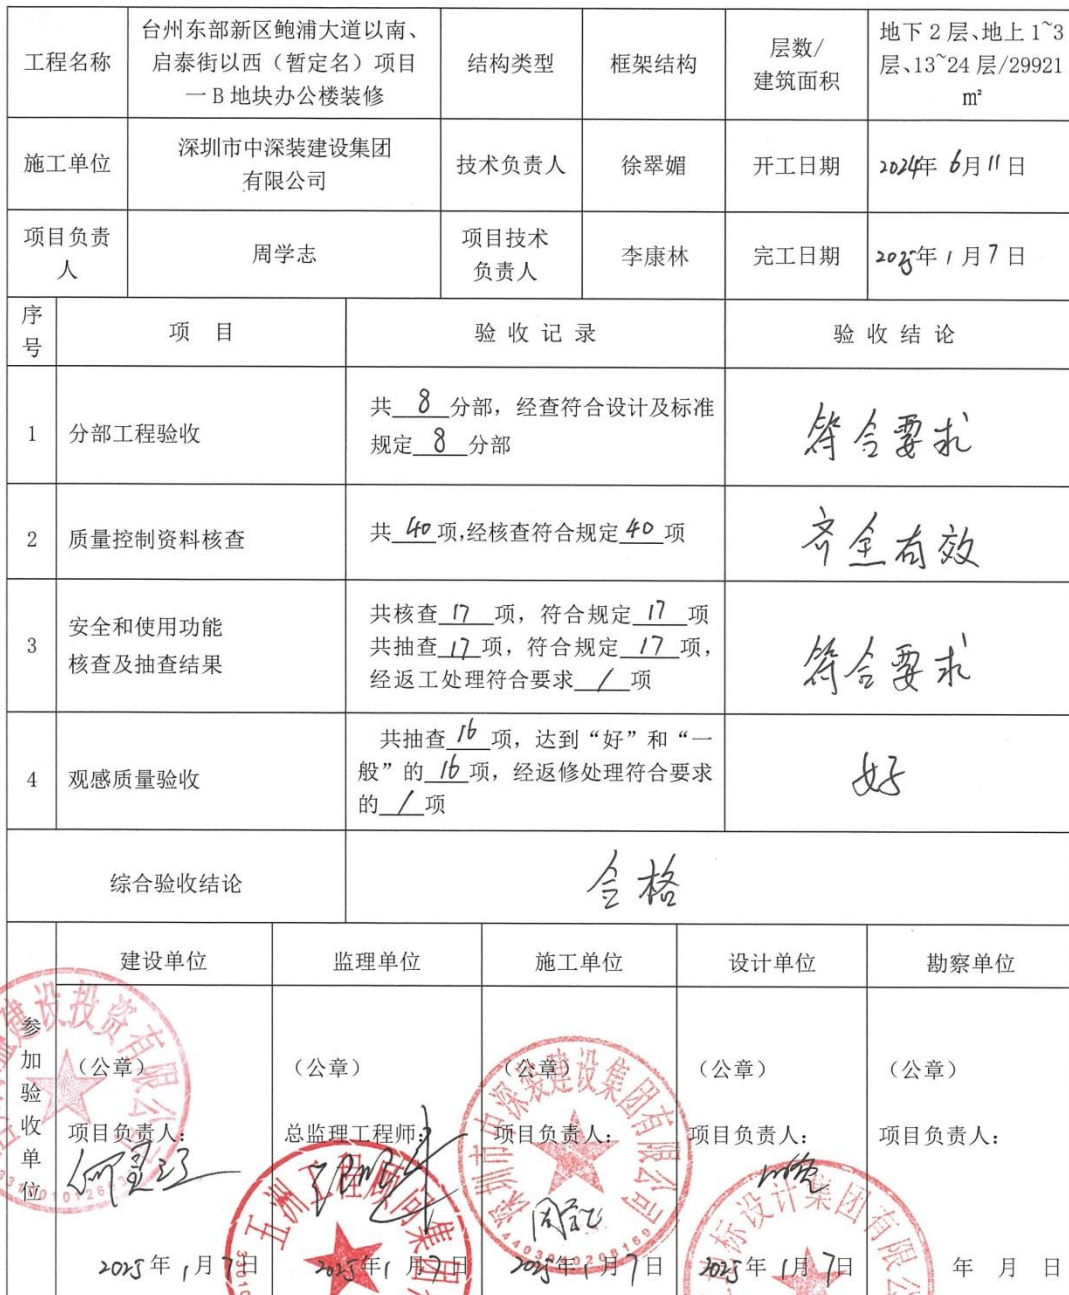 工程名称
台州东部新区鲍浦大道以南、
启泰街以西（暂定名）项目
一 B 地块办公楼装修
结构类型
框架结构
层数/
建筑面积
地下 2 层、地上 1~3
层、13~24 层/29921
m²
施工单位
深圳市中深装建设集团
有限公司
技术负责人
徐翠媚
开工日期
2024年 6月11日
项目负责
人
周学志
项目技术
负责人
李康林
完工日期
2025年 1月7日
序
号
项 目
验 收 记 录
验 收 结 论
1
分部工程验收
共 8 分部，经查符合设计及标准
规定 8 分部
符合要求
2
质量控制资料核查
共 40 项,经核查符合规定 40 项
齐全有效
3
安全和使用功能
核查及抽查结果
共核查 17 项，符合规定 17 项
共抽查 17 项，符合规定 17 项，
经返工处理符合要求 / 项
符合要求
4
观感质量验收
共抽查 16 项，达到“好”和“一
般”的 16 项，经返修处理符合要求
的 / 项
好
综合验收结论
合格
参
加
验
收
单
位
建设单位
监理单位
施工单位
设计单位
勘察单位
（公章）
（公章）
（公章）
（公章）
（公章）
项目负责人：
总监理工程师：
项目负责人：
项目负责人：
项目负责人：
2025年 1月7日
2025年 1月7日
2025年 1月7日
2025年 1月7日
年 月 日
建设投资有限公司
五洲工程顾问集团
深圳市中深装建设集团有限公司
标设计集团有限公